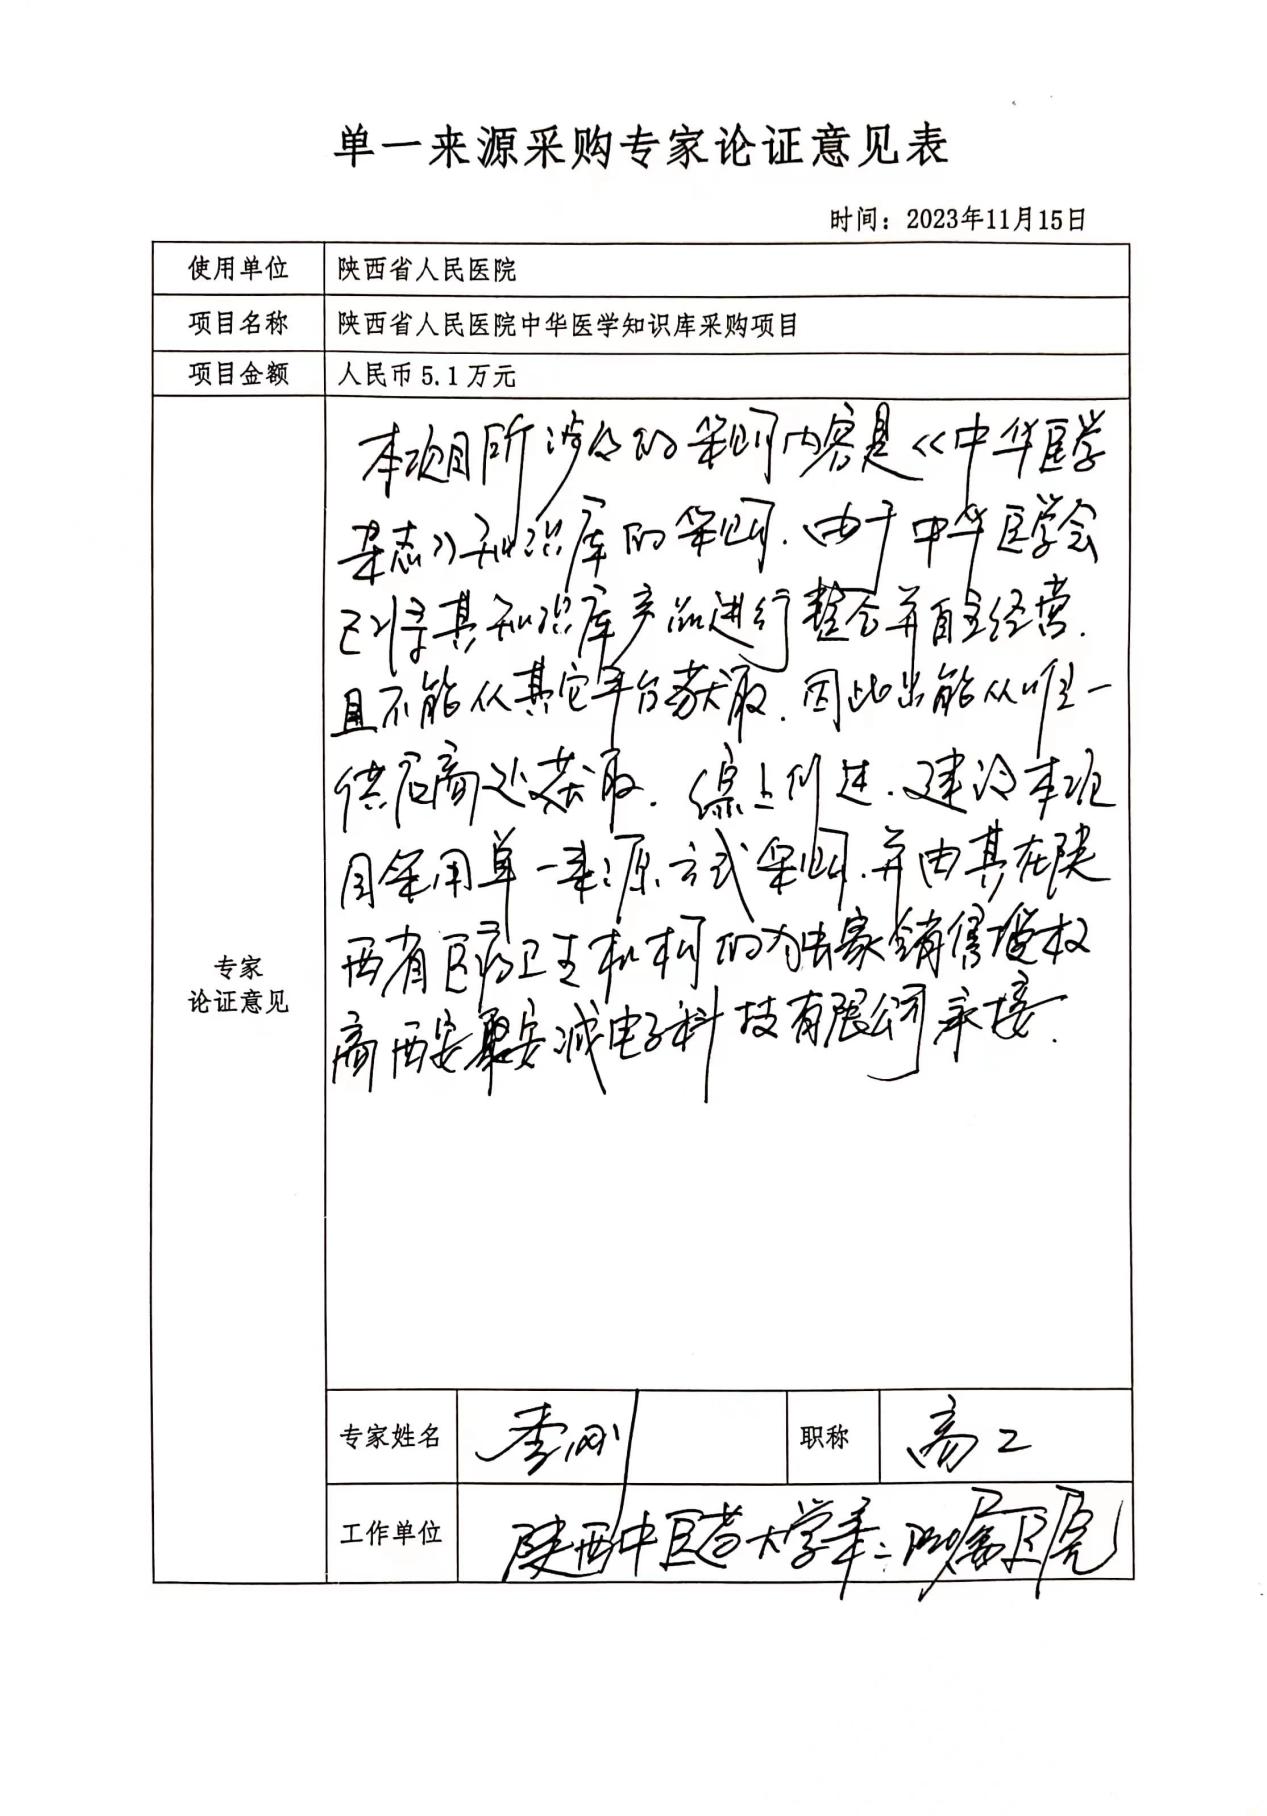 单一来源采购专家论证意见表
时间：2023年11月15日
使用单位 陕西省人民医院
项目名称 陕西省人民医院中华医学知识库采购项目
项目金额 人民币5.1万元
专家
论证意见
本项目所涉及的采购内容是《中华医学
杂志》知识库的采购．由于中华医学会
已将其知识库产品进行整合并自主经营．
且不能从其它平台获取．因此只能从唯一
供应商处获取．综上所述．建议本项
目采用单一来源方式采购．并由其在陕
西省医药卫生机构的独家销售授权
商西安聚安诚电子科技有限公司承接．
专家姓名 李刚 职称 高工
工作单位 陕西中医药大学第二附属医院